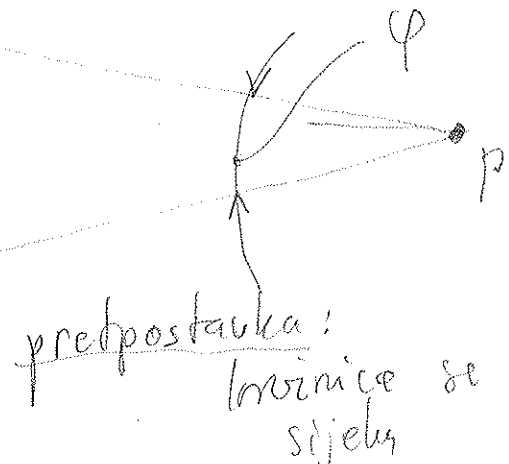 φ
P
pretpostavka:
kružnice se
sijeku